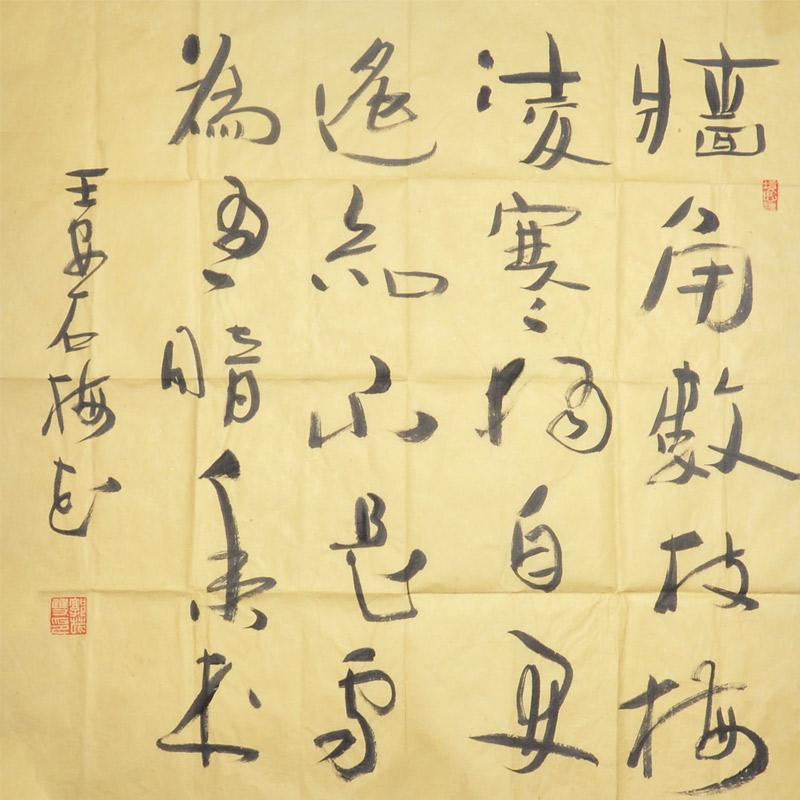 牆角數枝梅
凌寒獨自開
遙知不是雪
為有暗香来
王安石梅花